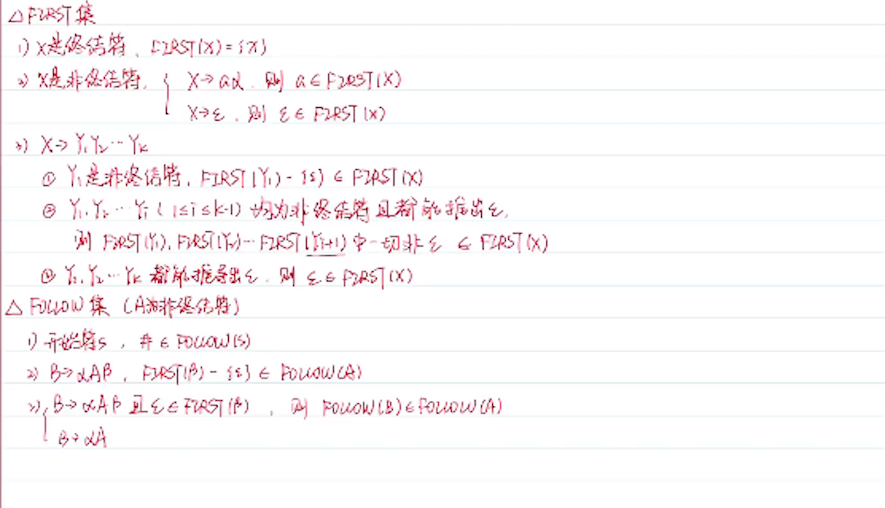 △ FIRST集
1) X是终结符、FIRST(X)={X}
2) X是非终结符, { X→aα, 则 a∈FIRST(X)
X→ε, 则 ε∈FIRST(X)
3) X→Y₁Y₂…Yₖ
① Y₁是非终结符, FIRST(Y₁)-{ε}∈FIRST(X)
② Y₁,Y₂…Yᵢ(1≤i≤k-1) 均为非终结符且都能推出ε,
则 FIRST(Y₁),FIRST(Y₂)…FIRST(Yᵢ₊₁)中一切非ε ∈ FIRST(X)
③ Y₁,Y₂…Yₖ 都能推导出ε, 则 ε∈FIRST(X)
△ FOLLOW集 (A为非终结符)
1) 开始符S, #∈FOLLOW(S)
2) B→αAβ, FIRST(β)-{ε}∈FOLLOW(A)
3) { B→αAβ 且ε∈FIRST(β), 则 FOLLOW(B)∈FOLLOW(A)
B→αA